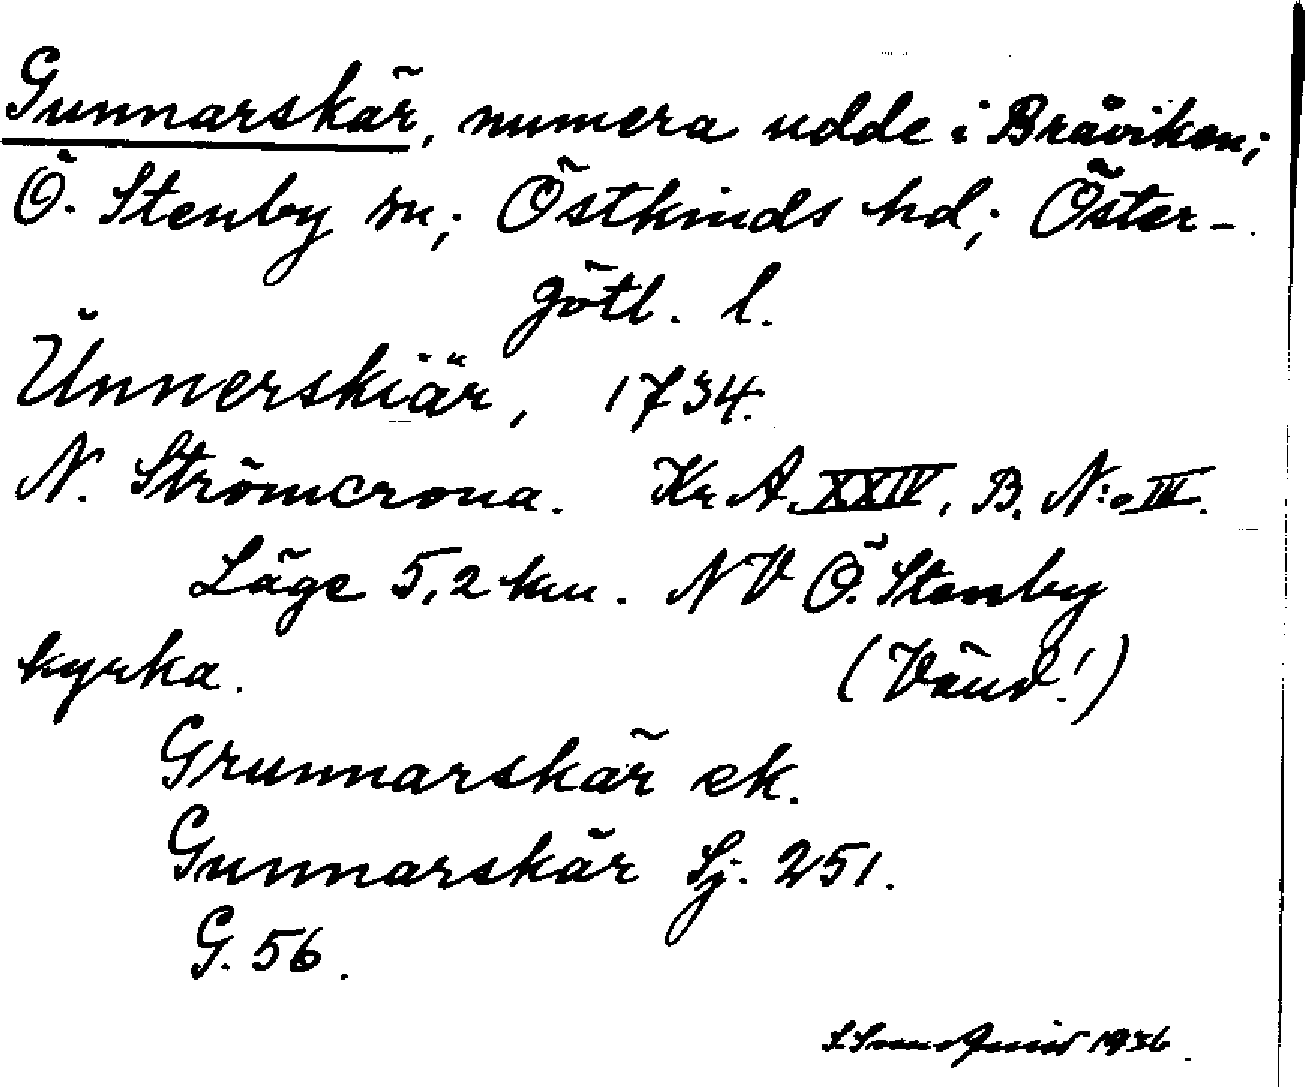 Gunnarskär, numera udde i Bråviken;
Ö. Stenby sn; Östkinds hd; Öster-
götl. l.
Unnerskiär, 1734.
N. Strömcrona. Kr. A. XXIV. B. N:o III.
Läge 5,2 km. NV Ö. Stenby
kyrka. (Vänd!)
Grunnarskär ek.
Gunnarskär Sj. 251.
G. 56.
1936.